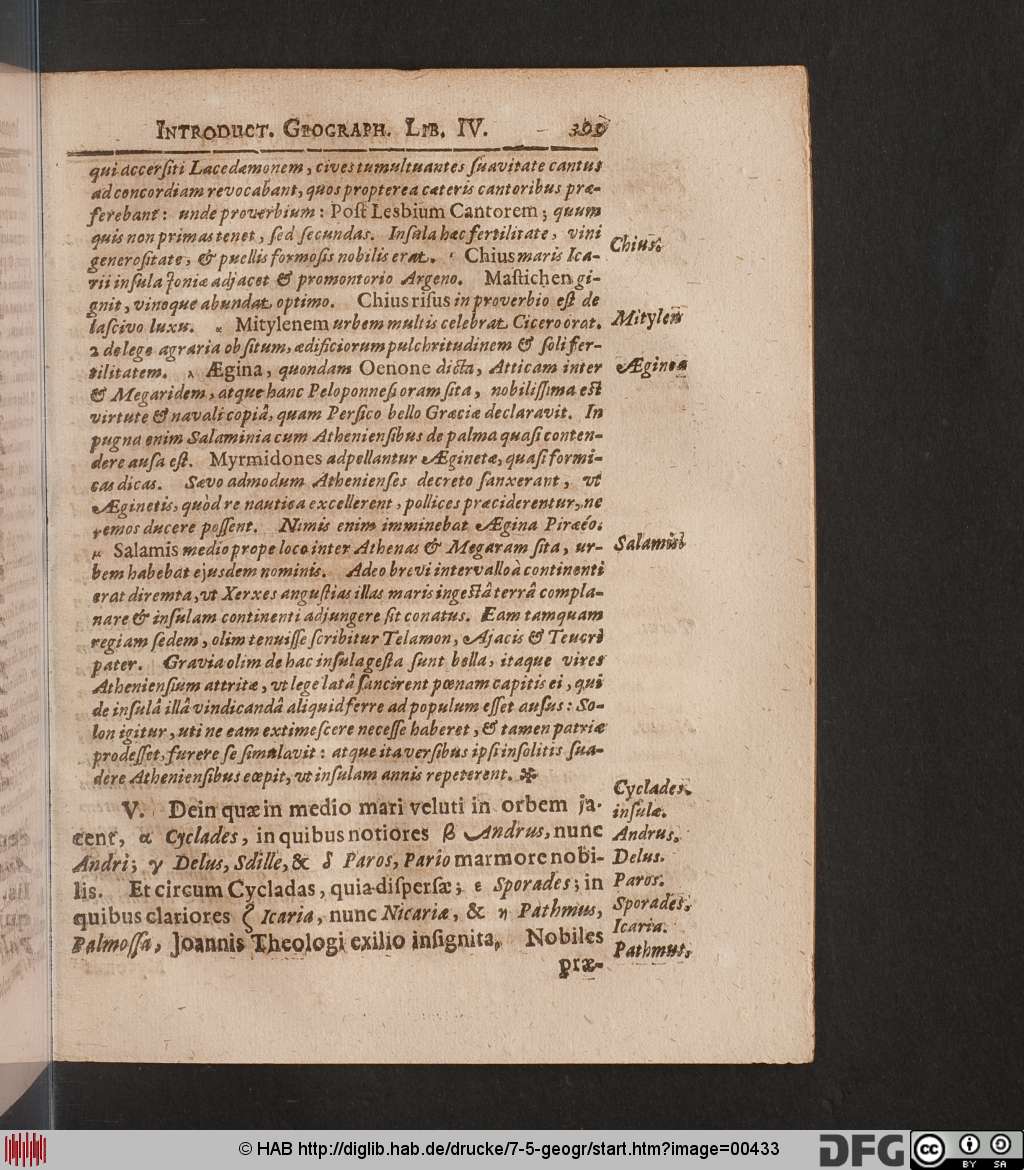 INTRODUCT. GEOGRAPH. LIB. IV.
qui accersiti Lacedæmonem, cives tumultuantes suavitate cantus
ad concordiam revocabant, quos propterea cæteris cantoribus præ-
ferebant: unde proverbium: Post Lesbium Cantorem; quum
quis non primas tenet, sed secundas. Insula hæc fertilitate, vini
generositate, & puellis formosis nobilis erat. ι Chius maris Ica-
Chius.
rii insula Joniæ adjacet & promontorio Argeno. Mastichen gi-
gnit, vinoque abundat optimo. Chius risus in proverbio est de
lascivo luxu. κ Mitylenem urbem multis celebrat Cicero orat.
Mitylen
2 de lege agraria ob situm, ædificiorum pulchritudinem & soli fer-
tilitatem. λ Ægina, quondam Oenone dicta, Atticam inter
Æginea
& Megaridem, atque hanc Peloponnesi oram sita, nobilissima est
virtute & navali copiâ, quam Persico bello Græciæ declaravit. In
pugna enim Salaminia cum Atheniensibus de palma quasi conten-
dere ausa est. Myrmidones adpellantur Æginetæ, quasi formi-
cas dicas. Sævo admodum Athenienses decreto sanxerant, ut
Æginetis, quòd re nautica excellerent, pollices præciderentur, ne
remos ducere possent. Nimis enim imminebat Ægina Piræéo.
μ Salamis medio prope loco inter Athenas & Megaram sita, ur-
Salamis
bem habebat ejusdem nominis. Adeo brevi intervallo à continenti
erat diremta, ut Xerxes angustias illas maris ingestâ terrâ compla-
nare & insulam continenti adjungere sit conatus. Eam tamquam
regiam sedem, olim tenuisse scribitur Telamon, Ajacis & Teucri
pater. Gravia olim de hac insula gesta sunt bella, itaque vires
Atheniensium attritæ, ut lege latâ sancirent pœnam capitis ei, qui
de insulâ illâ vindicandâ aliquid ferre ad populum esset ausus: So-
lon igitur, uti ne eam extimescere necesse haberet, & tamen patriæ
prodesset, furere se simulavit: atque ita versibus ipsi insolitis sua-
dere Atheniensibus cœpit, ut insulam annis repeterent. ✻
V. Dein quæ in medio mari veluti in orbem ja-
Cyclades.
insulæ.
cent, α Cyclades, in quibus notiores β Andrus, nunc
Andrus.
Andri; γ Delus, Sdille, & δ Paros, Pario marmore nobi-
Delus.
lis. Et circum Cycladas, quia dispersæ; ε Sporades; in
Paros.
quibus clariores ζ Icaria, nunc Nicaria, & η Pathmus,
Sporades,
Icaria.
Palmossa, Joannis Theologi exilio insignita. Nobiles
Pathmus,
præ-
© HAB http://diglib.hab.de/drucke/7-5-geogr/start.htm?image=00433
DFG
cc
BY SA